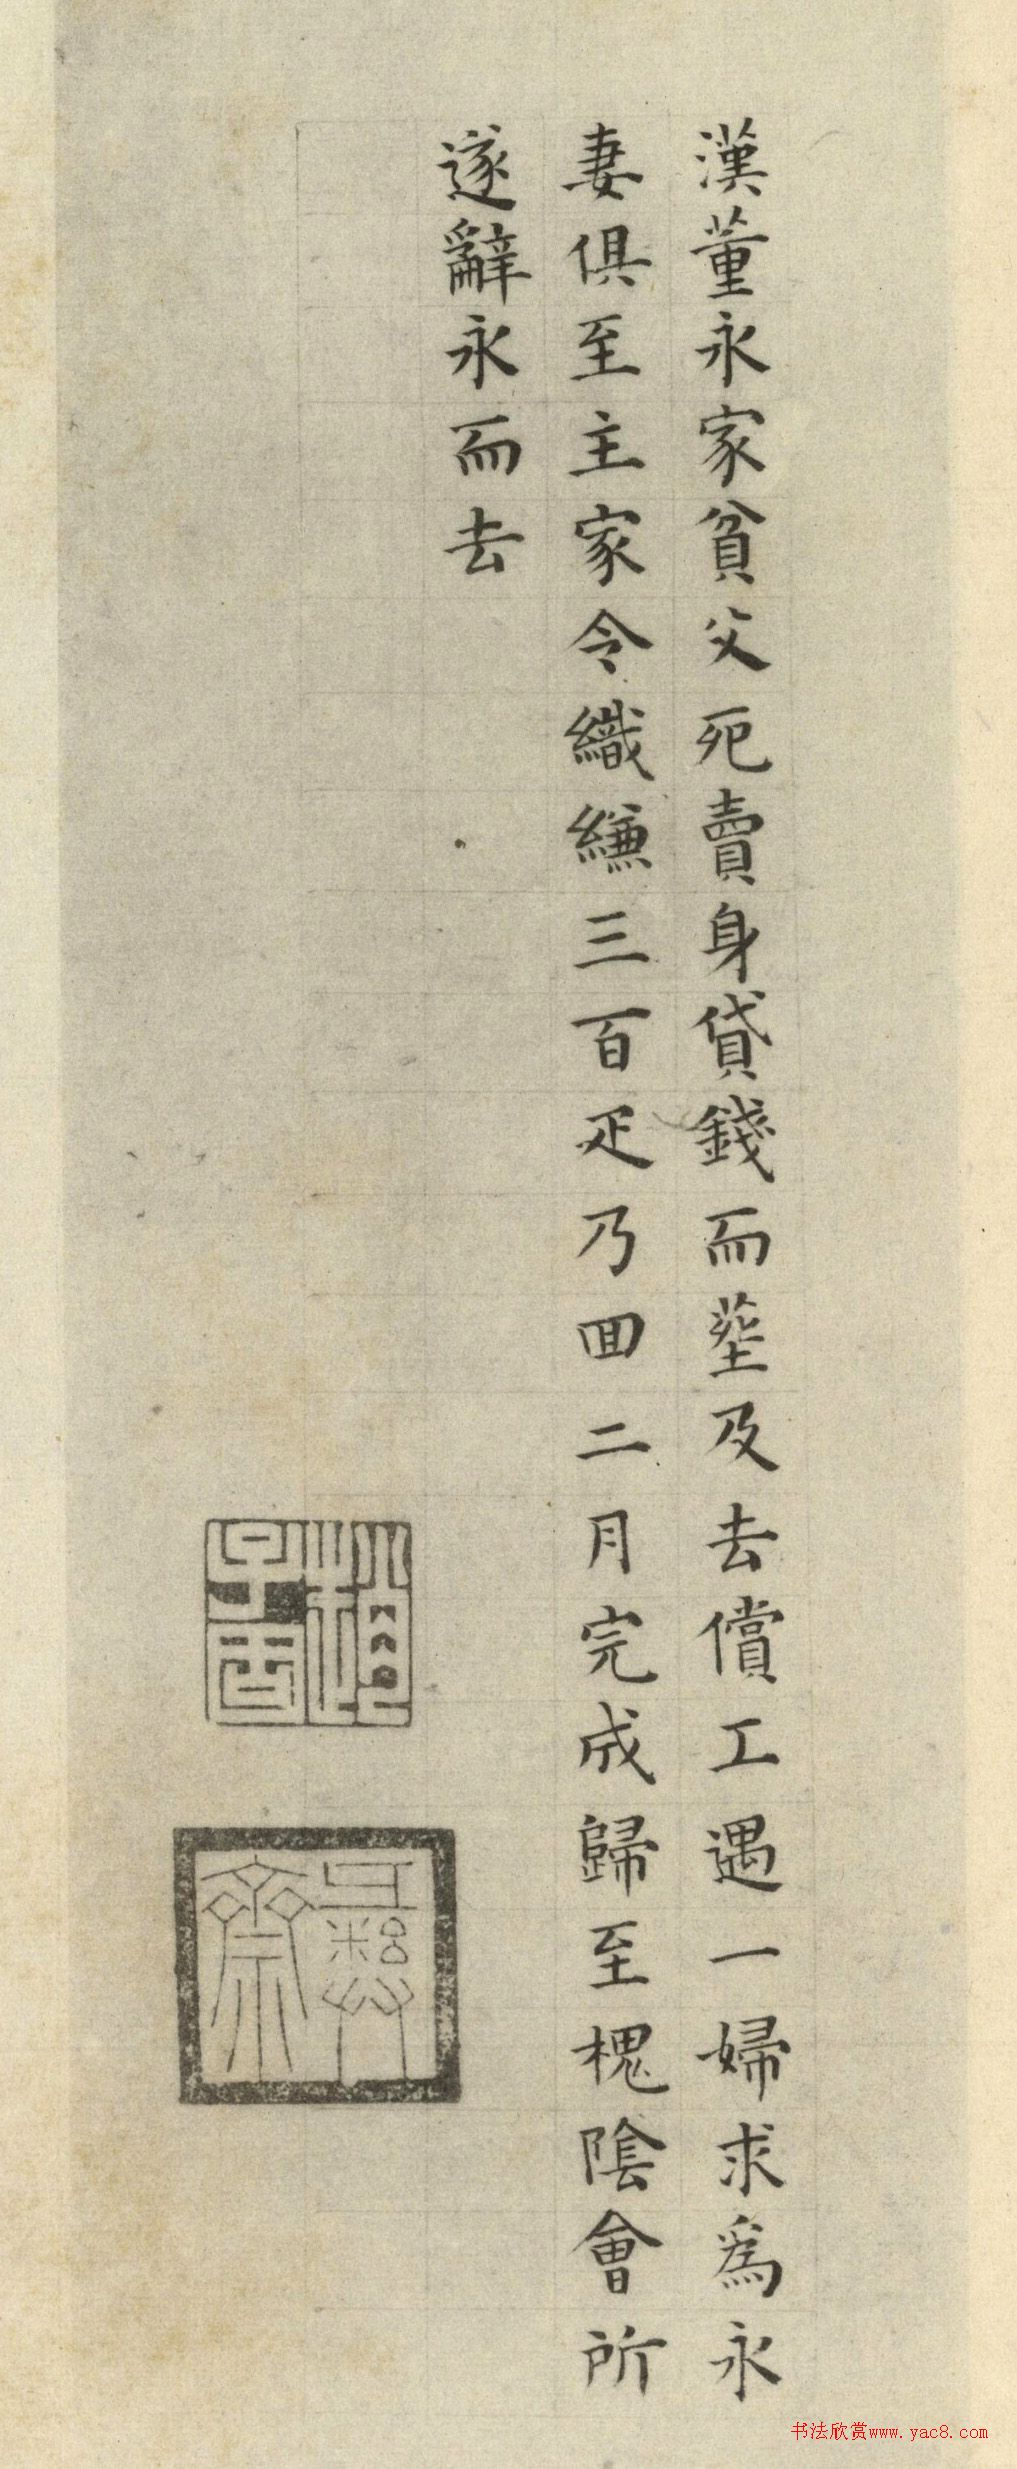 漢董永家貧父死賣身貸錢而塟及去償工遇一婦求爲永
妻俱至主家令織縑三百疋乃回二月完成歸至槐陰會所
遂辭永而去
彝齋
书法欣赏www.yac8.com